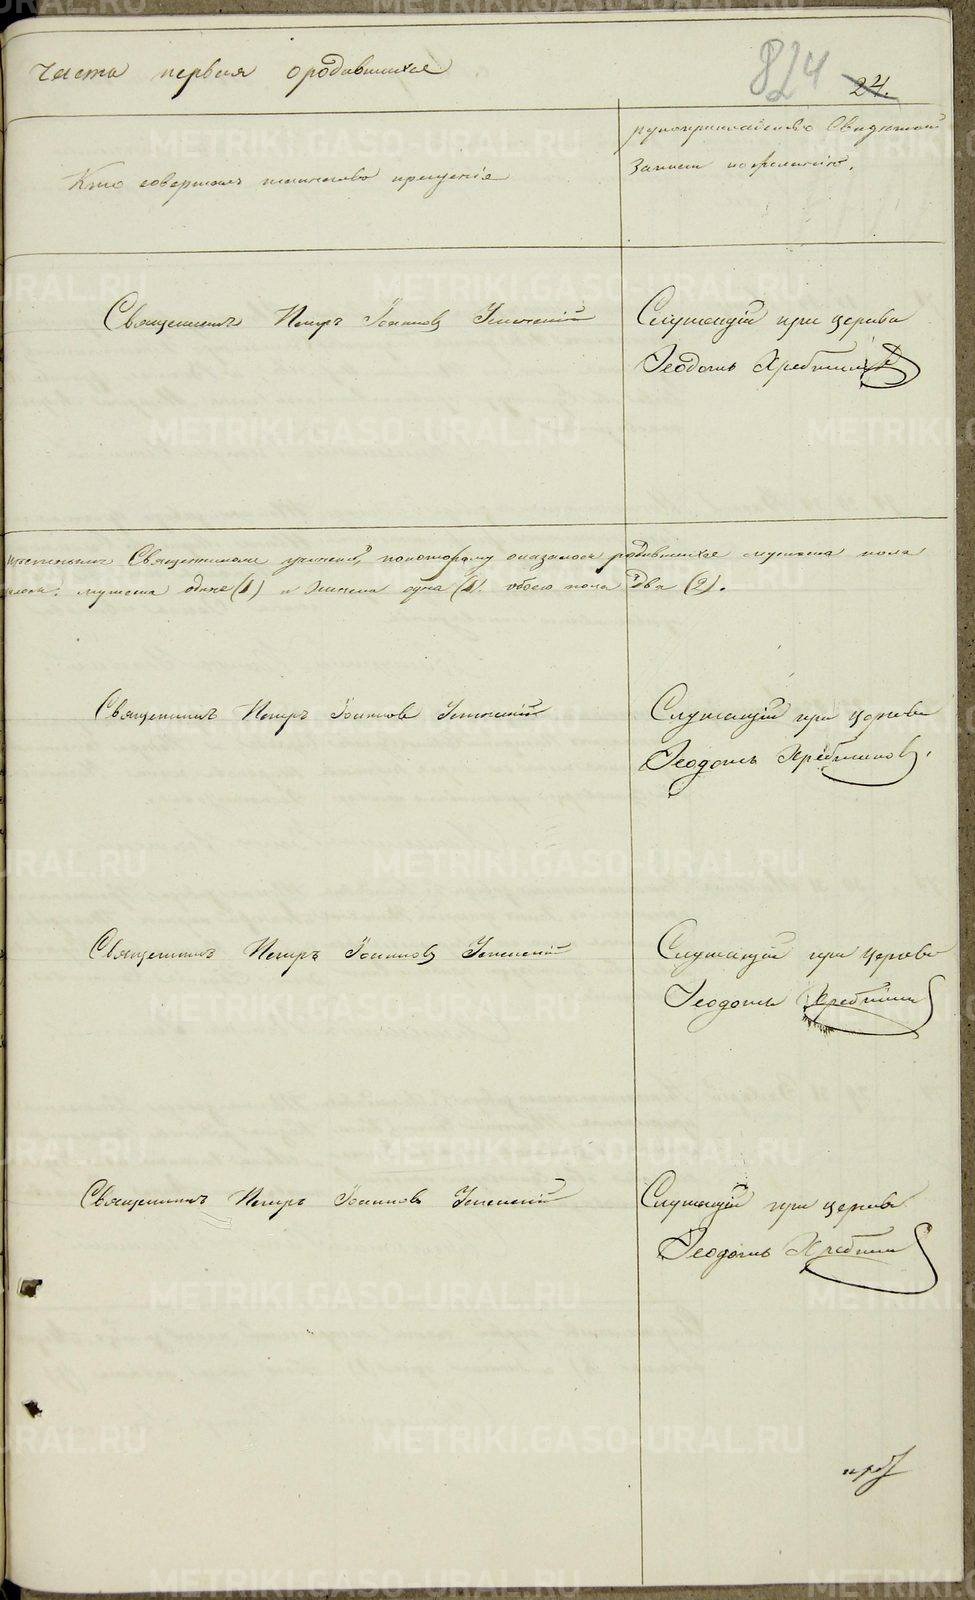 Часть первая о родившихся
824
24.
Кто совершалъ таинство крещенія
рукоприкладство Свидетелей
Записи по желанію.
Священникъ Петръ Іоанновъ Успенскій
Служащій при церкви
Ѳеодотъ Хребтиковъ
Священникомъ покоторому оказалось родившихся мужеска пола
мужеска одинъ (1) и Женска одна (1) обоего пола два (2).
Священникъ Петръ Іоанновъ Успенскій
Служащій при церкви
Ѳеодотъ Хребтиковъ.
Священникъ Петръ Іоанновъ Успенскій
Служащій при церкви
Ѳеодотъ
Священникъ Петръ Іоанновъ Успенскій
Служащій при церкви
Ѳеодотъ
METRIKI.GASO-URAL.RU